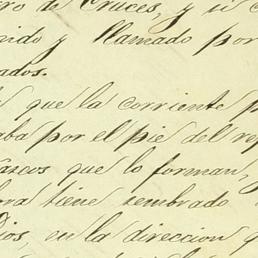 ro de Cruces, y si
nido y llamado por
ados.
que la corriente
aba por el pie del rep
áscos que lo forman,
ora tiene sembrado
Dios, en la direccion q